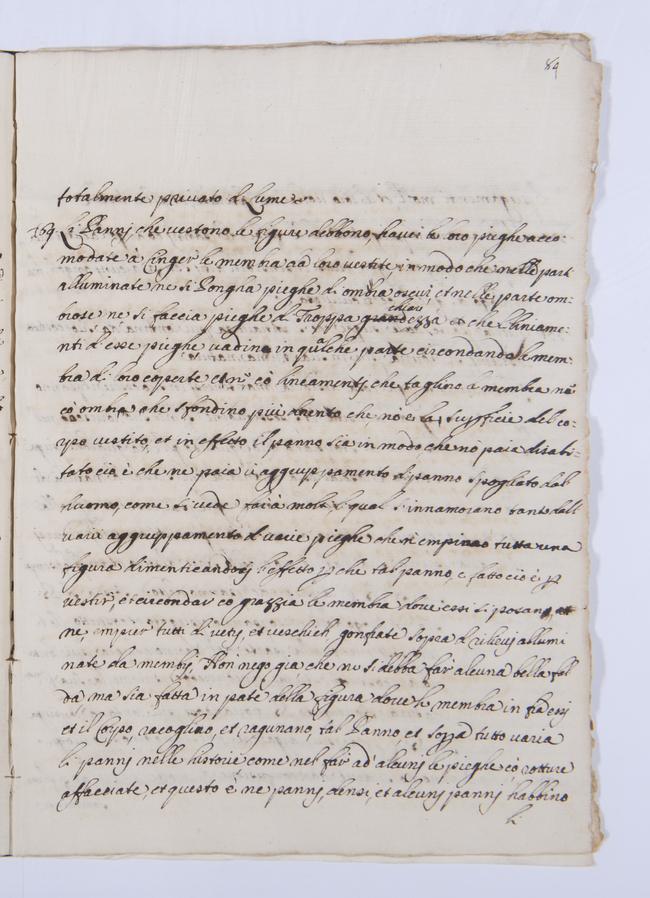 84
totalmente privato di Lume
164 Li Panni che vestono le figure debbono haver le loro pieghe acco:
modate à Cinger le membra da loro vestite in modo che nelle parti
alluminate ne si Ponghi pieghe d'ombra oscure, et nelle parte om:
brose ne si faccia pieghe di Troppa grandezza chiari et che Lliniame:
nti d'esse pieghe vadino in qualche parte circondando le mem:
bra di loro coperte et nõ cõ lineamenti, che taglino le membra nõ
cõ ombra che sfondino piu drento che nõ è la suppficie del co:
rpo vestito, et in effecto il panno sia in modo che nõ paia disabi:
tato cio è che ne paia u aggruppamento di panno spogliato dall
huomo, come si vede far'à molti li quali s'innamorano tanto delli
varii aggruppamento di varie pieghe che n'empinao tutta una
figura dimenticandosi l'effecto p che tal panno, e fatto cio è p
vestir, et circondar cõ grazzia le membra dove essi si posano,
ne, empier tutti di ventj, et veschich gonfiate sopra d rilievj allumi
nate da membrj. Non nego gia che ne si debba far alcuna bella fal
da, ma sia fatta in parte della figura dove le membra in fra essj
et il Corpo, racogliao, et ragunano, tal Panno et sopra tutto varia
li panni nelle historie come nel far ad alcunj le pieghe cõ rotture
affacciate, et questo è ne pannj, densi, et alcunj pannj habbino
li